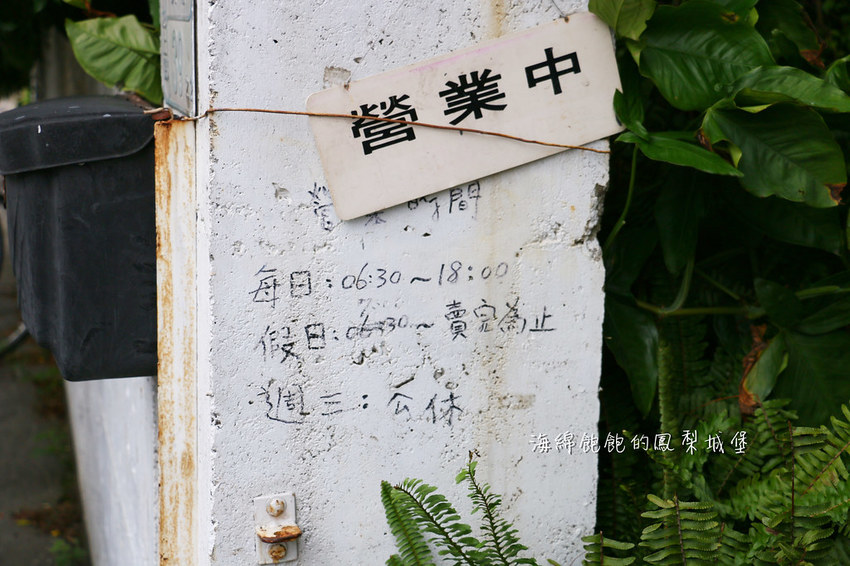 營業中
營業時間
每日：06:30～18:00
假日：06:30～賣完為止
週三：公休
海綿飽飽的鳳梨城堡